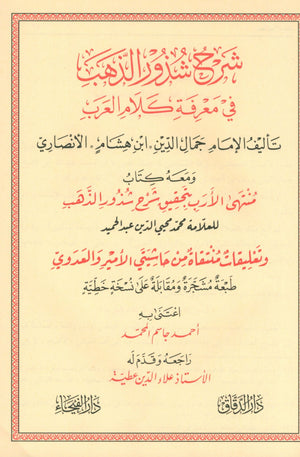 شَرْحُ شُذُورِ الذَّهَبِ
فِي مَعْرِفَةِ كَلَامِ العَرَبِ
تَأليفُ الإمَامِ جَمَالِ الدِّين ابْنِ هِشَامٍ الأَنْصَارِيّ
وَمَعَهُ كِتَابُ
مُنْتَهَى الأَرَبِ بِتَحْقِيقِ شَرْحِ شُذُورِ الذَّهَبِ
للعلّامة محمّد محيي الدين عبد الحميد
وَتَعْلِيقَاتٌ مُنْتَقَاةٌ مِنْ حَاشِيَتَيِ الأَمِيرِ وَالعَدَوِيِّ
طَبْعَةٌ مُشَجَّرَةٌ وَمُقَابَلَةٌ عَلَى نُسْخَةٍ خَطِّيَّةٍ
اعْتَنَى بِهِ
أحمد جاسم المحمّد
رَاجَعَهُ وَقَدَّمَ لَهُ
الأستاذ علاء الدّين عطيّة
دار الدقاق
دار الفيحاء